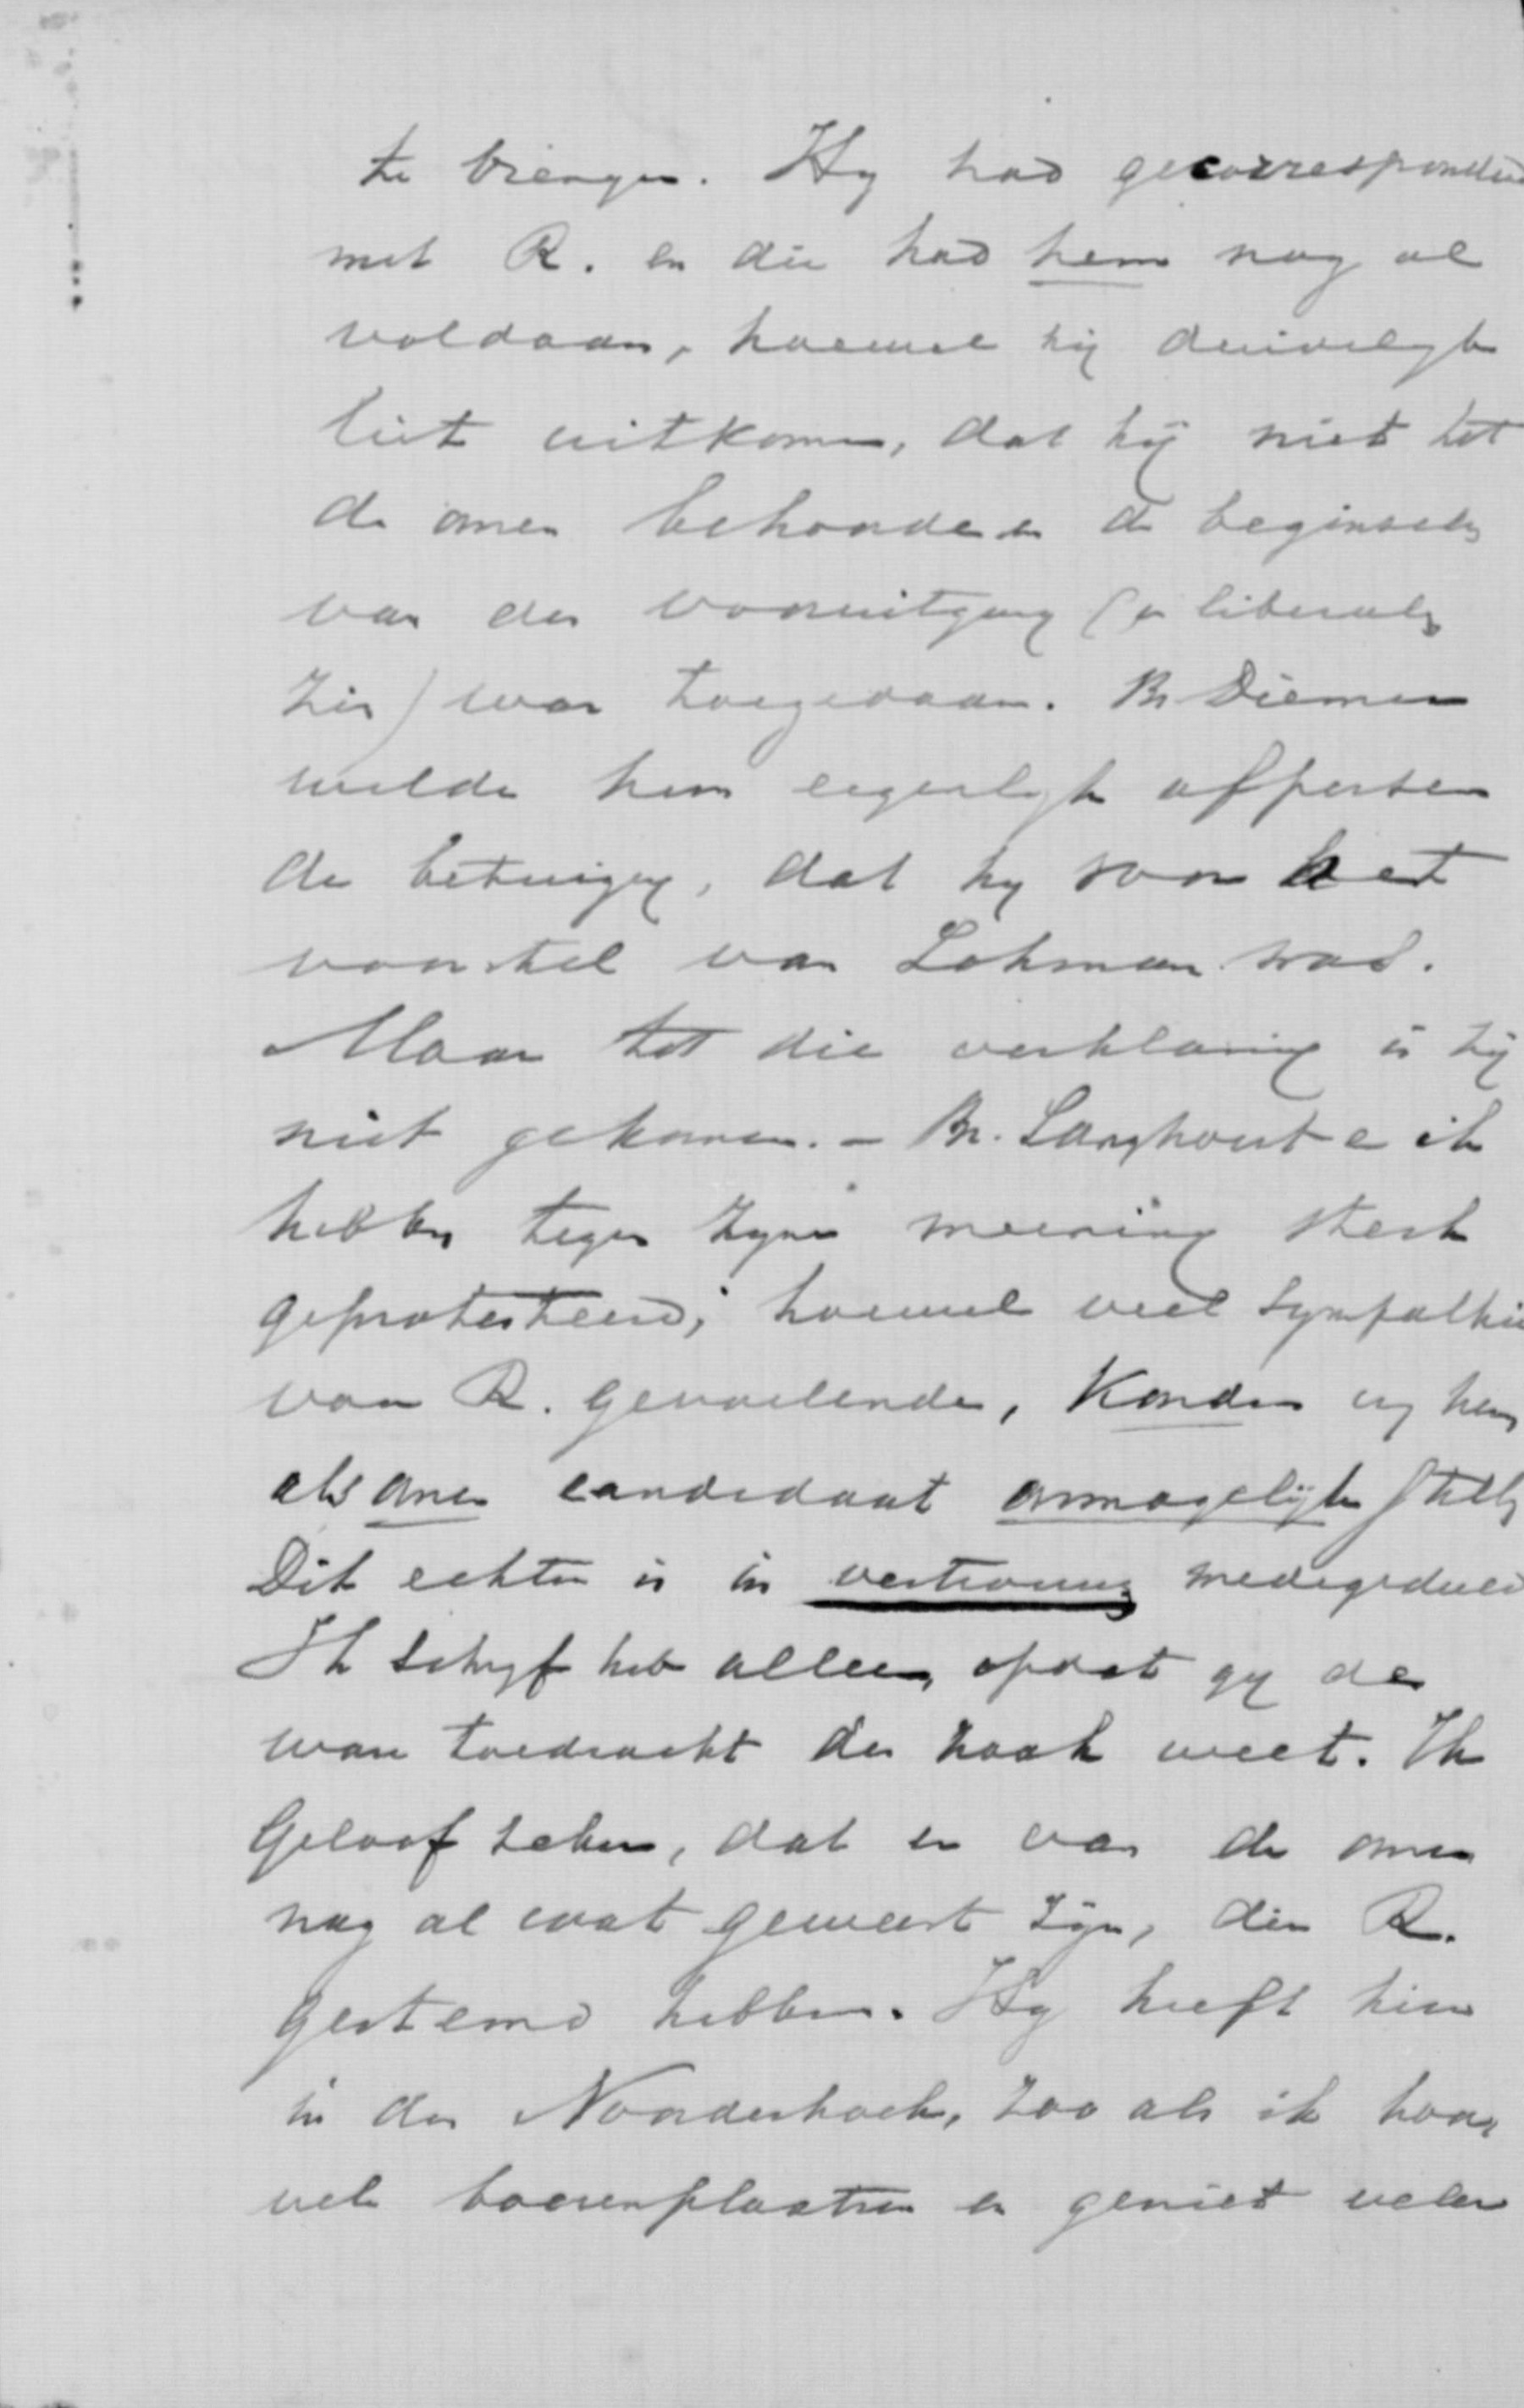 te brengen. Hy had gecorrespondeerd
met R. en die had hem nog al
voldaan, hoewel hij duidelijk
liet uitkomen, dat hij niet tot
de onzen behoorde en de beginselen
van den vooruitgang (in liberalen
zin) was toegedaan. Br Diemer
wilde hem eigenlijk afpersen
de betuiging, dat hy voor het
voorstel van Lohman was.
Maar tot die verklaring is hij
niet gekomen. - Br. Langhout en ik
hebben tegen zyne meening sterk
geprotesteerd; hoewel veel sympathie
voor R. gevoelende, konden wy hem
als onzen candidaat onmogelijk stellen
Dit echter is in vertrouwen medegedeeld
Ik schryf het alleen, opdat gy de
ware toedracht der zaak weet. Ik
geloof zeker, dat er van de onzen
nog al wat geweest zijn, die R.
gestemd hebben. Hy heeft hier
in den Noorderhoek, zoo als ik hoor
vele boerenplaatsen en geniet veler